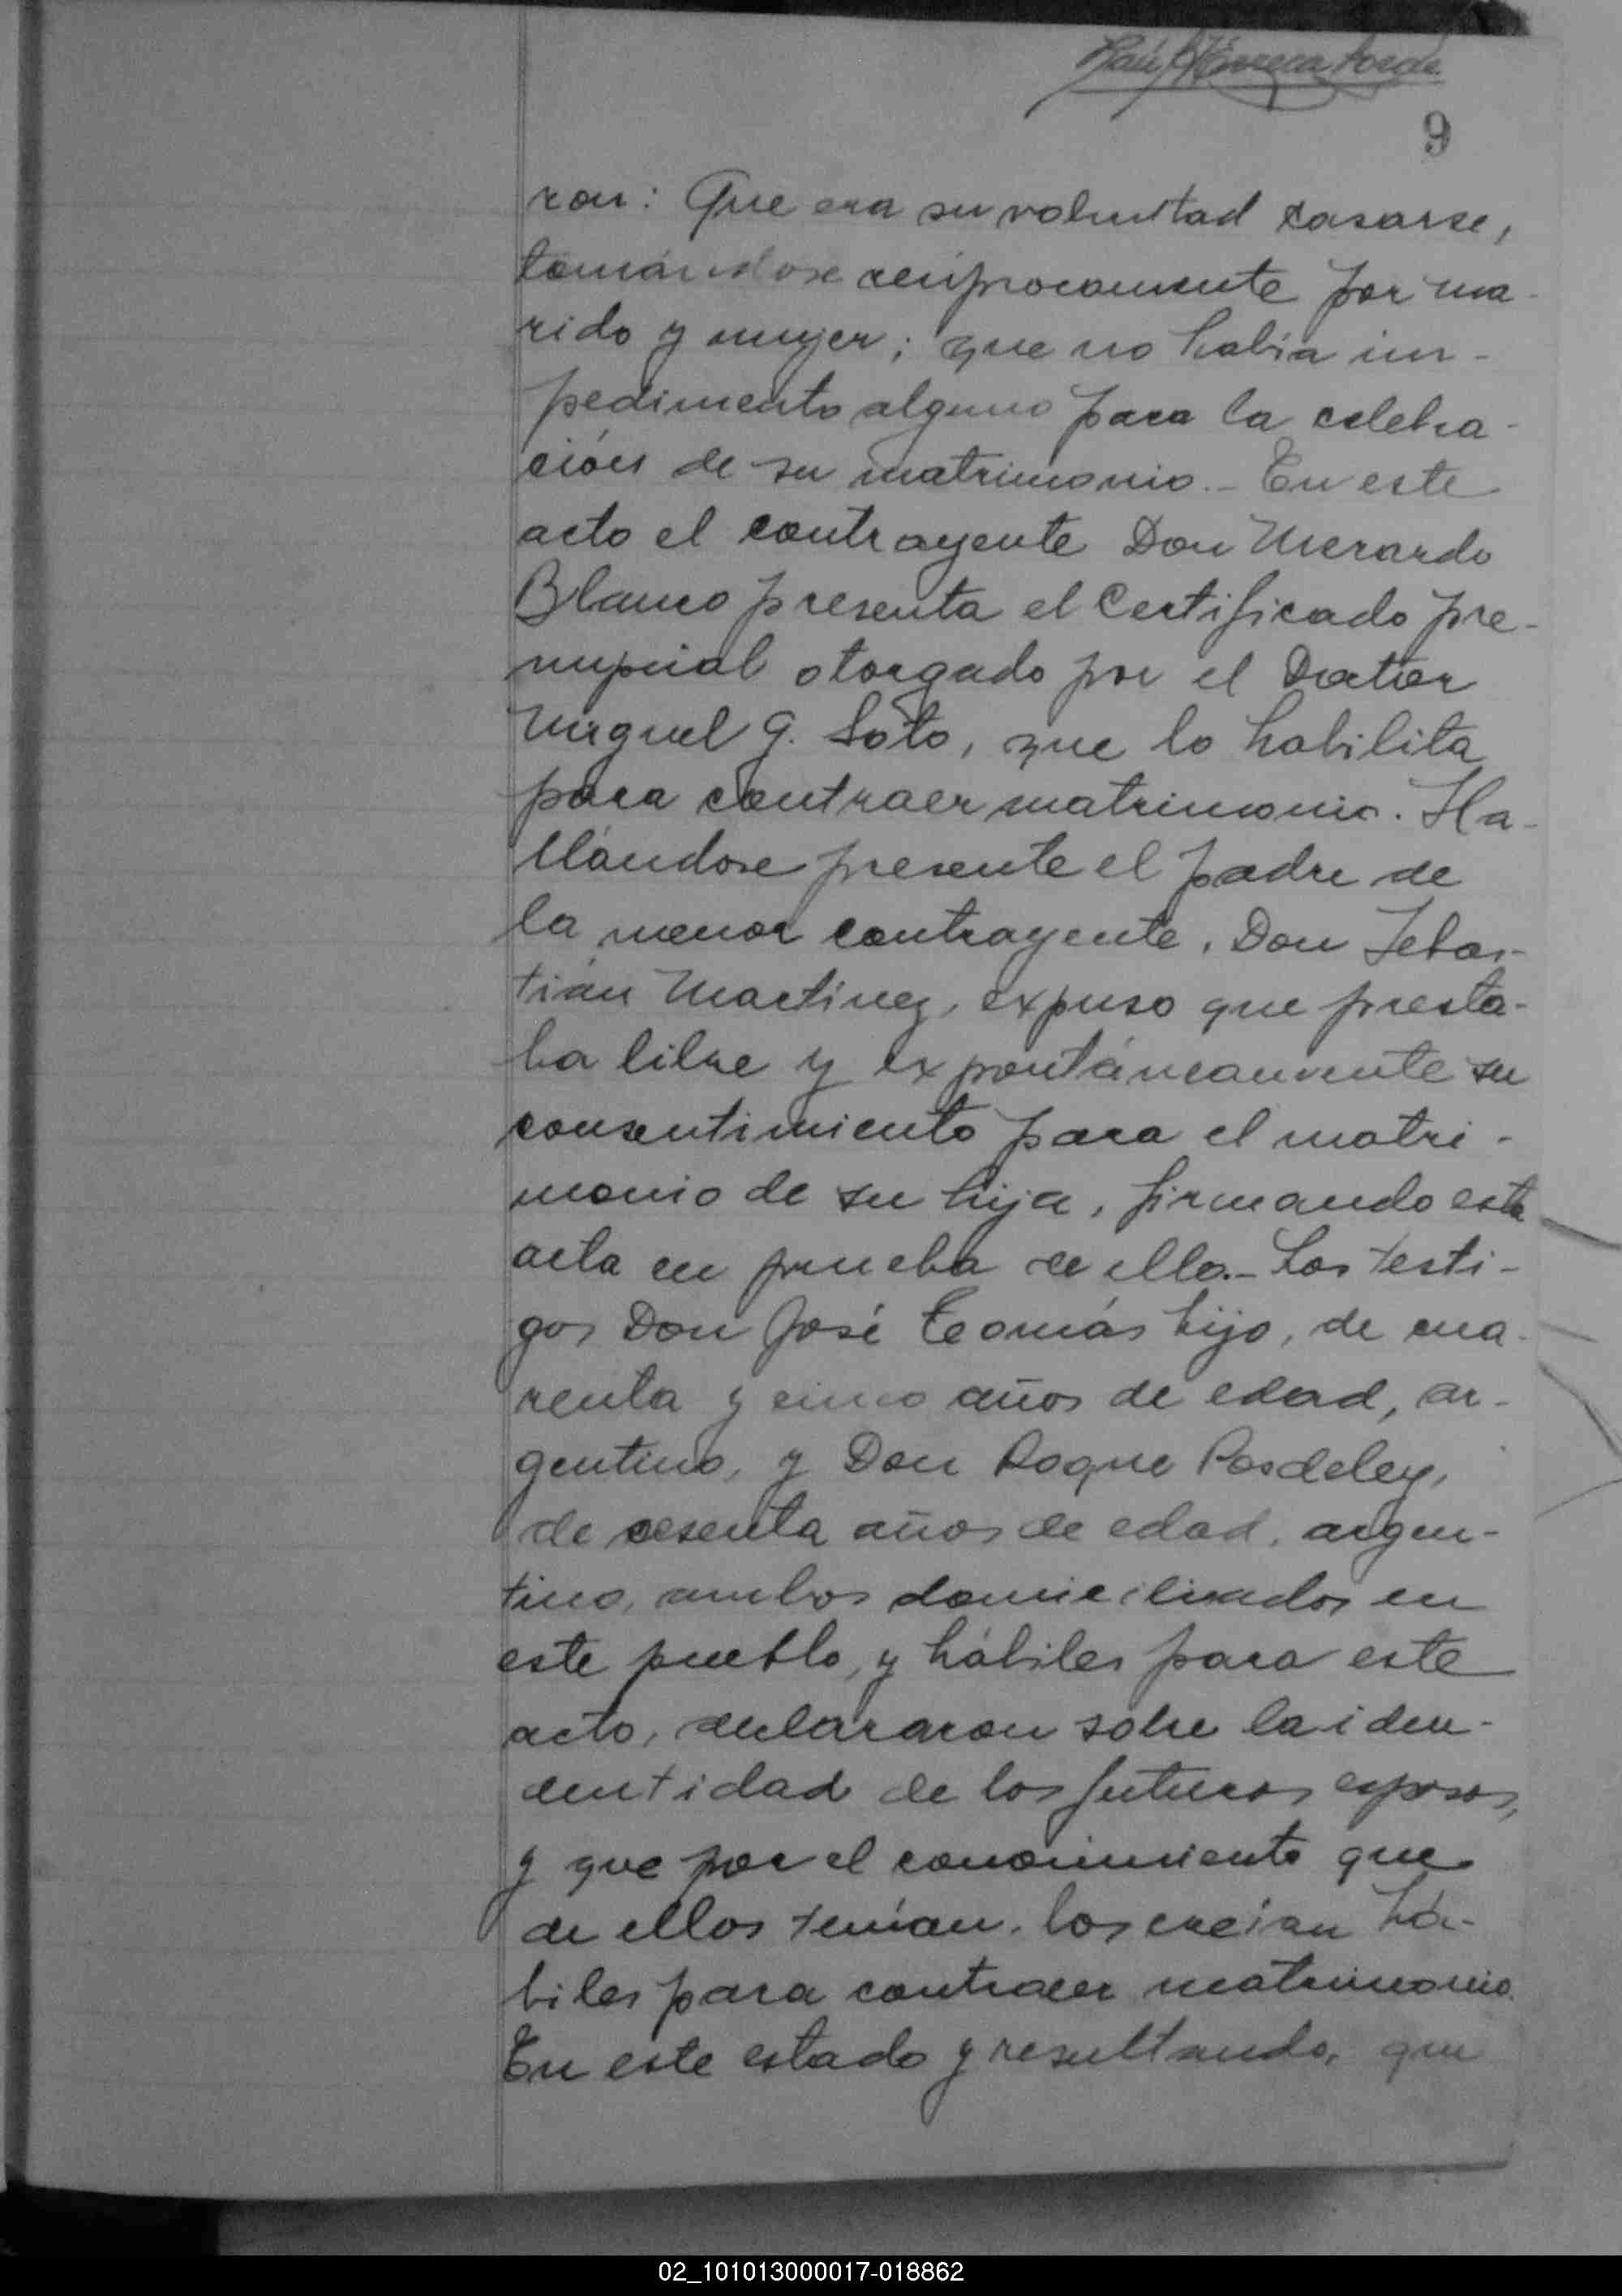 9
ron: Que era su voluntad casarse,
tomándose recíprocamente por ma-
rido y mujer; que no había im-
pedimento alguno para la celebra-
ción de su matrimonio.- En este
acto el contrayente Don Merardo
Blanco presenta el Certificado pre-
nupcial otorgado por el Doctor
Miguel G. Soto, que lo habilita
para contraer matrimonio. Ha-
llándose presente el padre de
la menor contrayente, Don Sebas-
tián Martínez, expuso que presta-
ba libre y expontáneamente su
consentimiento para el matri-
monio de su hija, firmando esta
acta en prueba de ello.- Los testi-
gos Don José Teomás hijo, de cua-
renta y cinco años de edad, ar-
gentino, y Don Roque
de sesenta años de edad, argen-
tino, ambos domiciliados en
este pueblo, y hábiles para este
acto, declararon sobre la iden-
dentidad de los futuros esposos,
y que por el conocimiento que
de ellos tenían, los creían há-
biles para contraer matrimonio.
En este estado y resultando, que
02_101013000017-018862